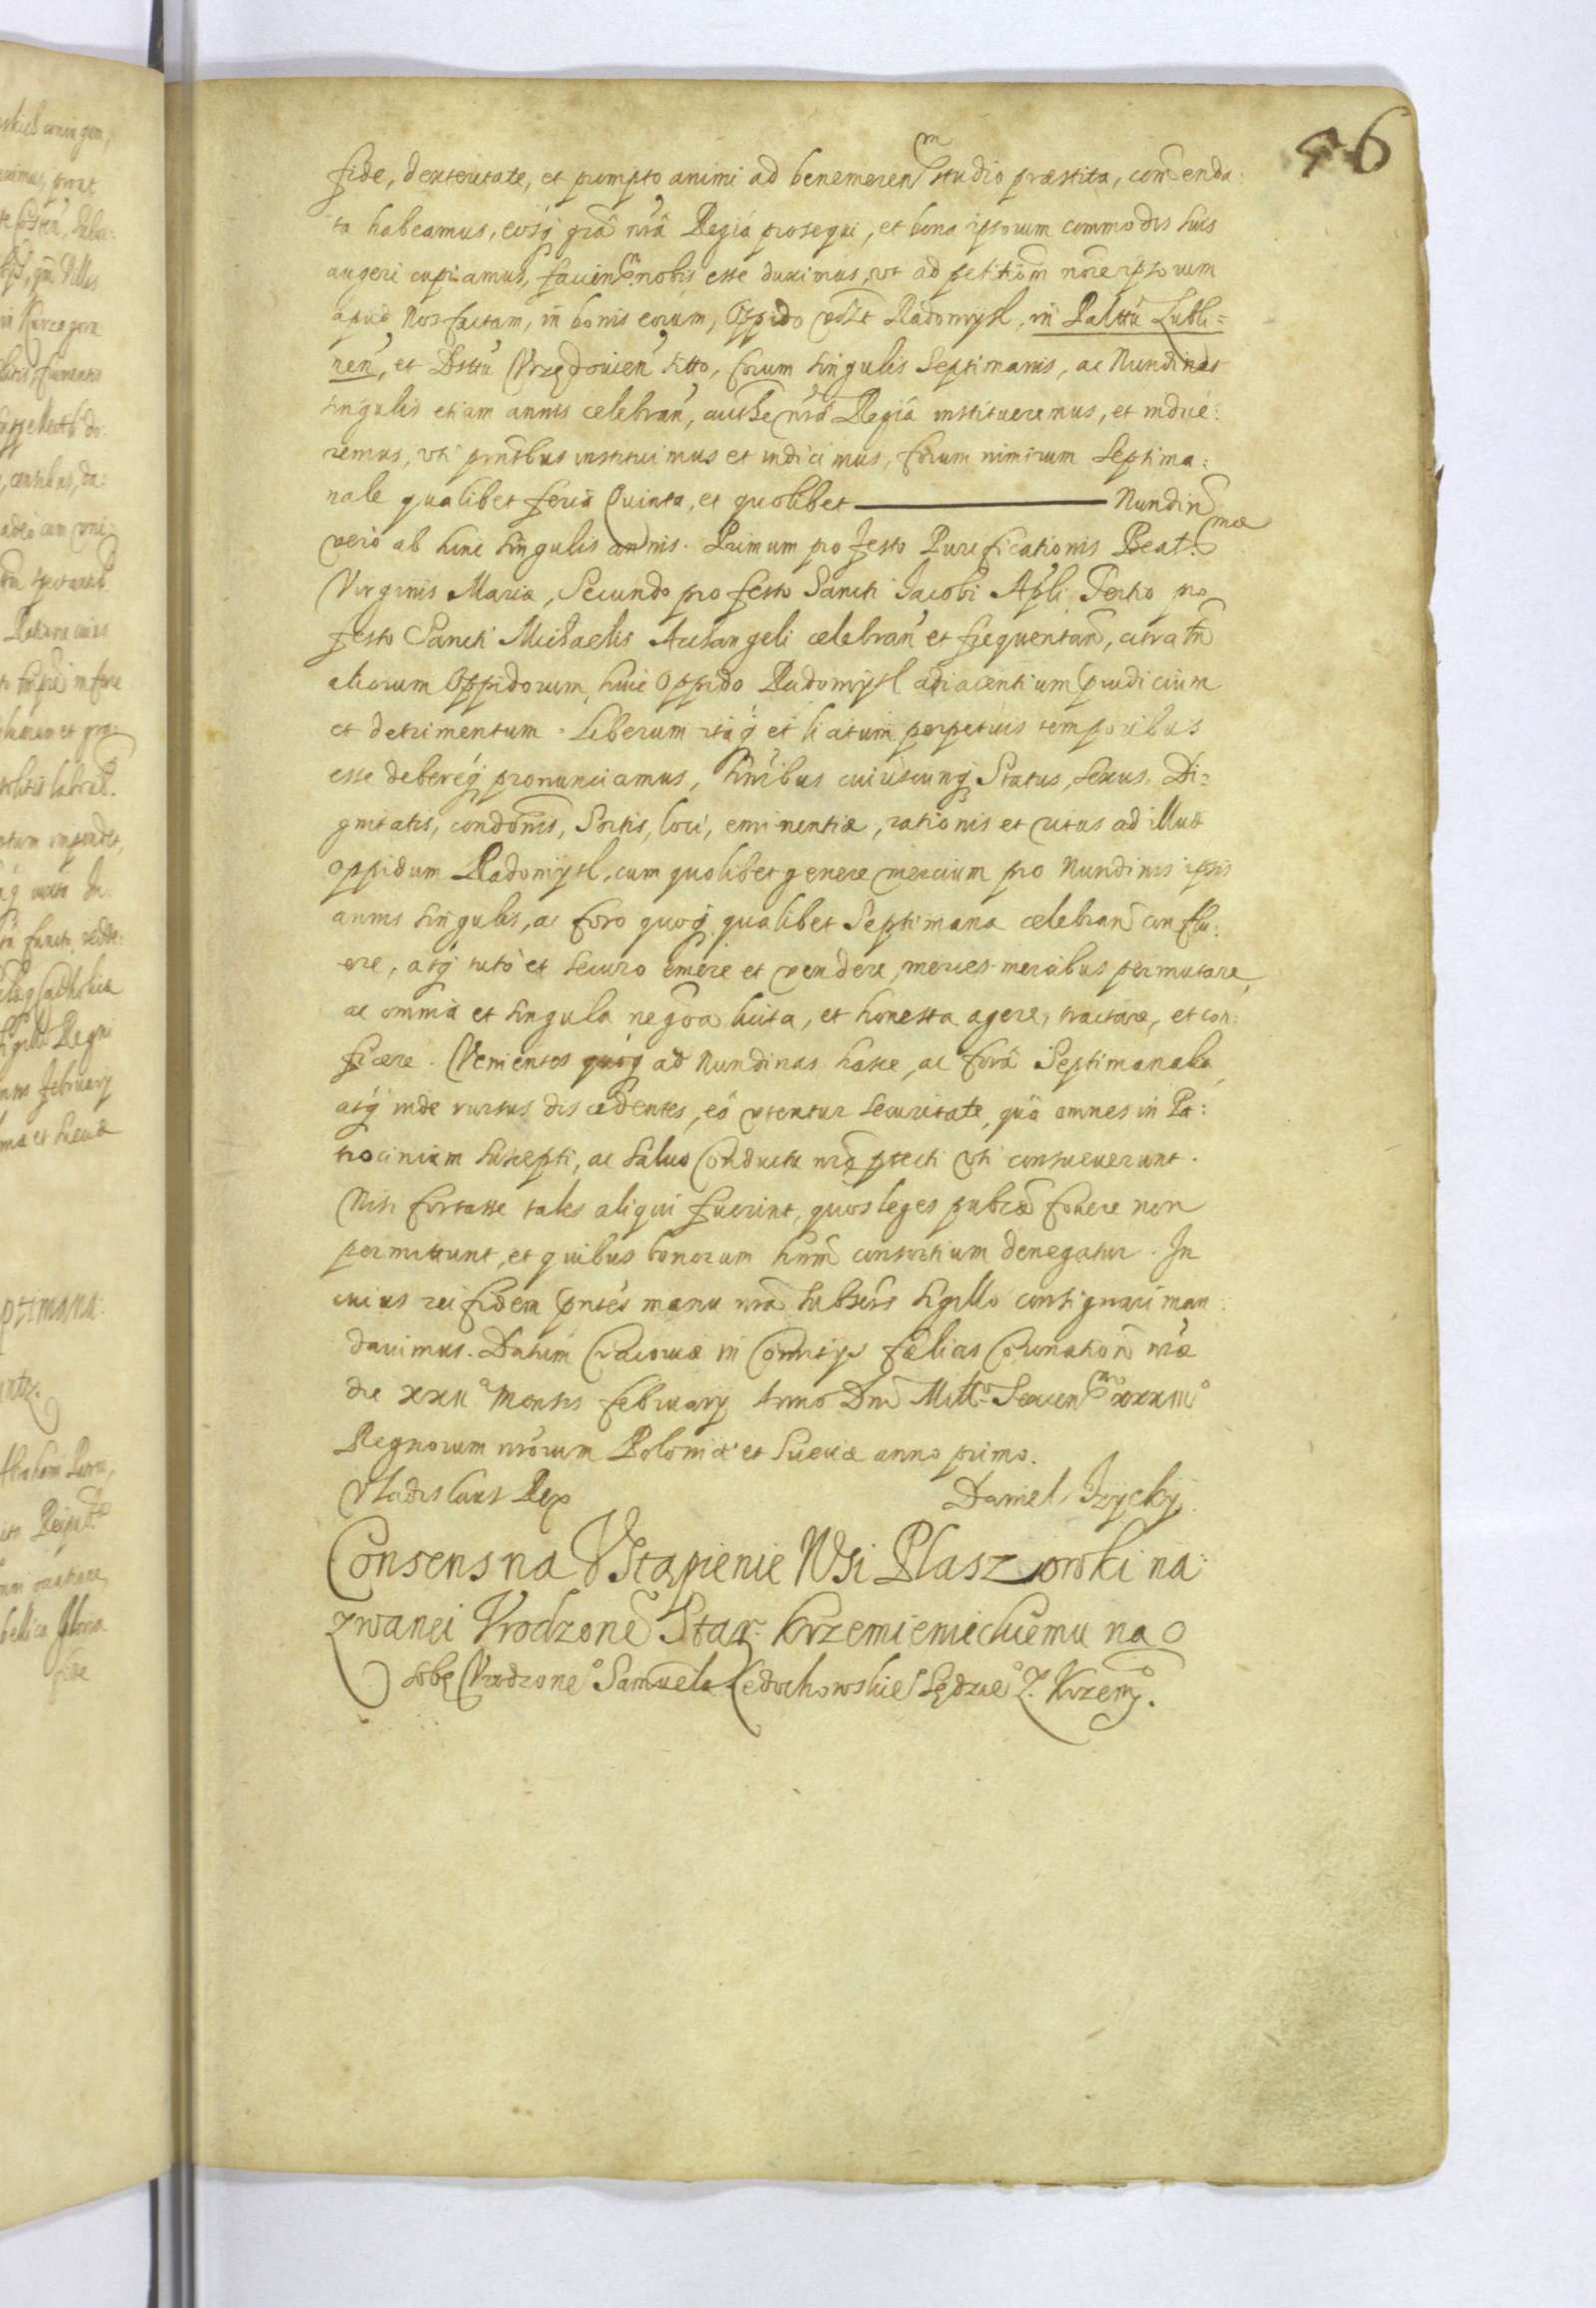 56
fide, dexteritate, et prompto animi ad benemeren͂m studio præstita, com̃enda:
ta habeamus, eosq̃ grã nrã Regiâ prosequi, et bona ipsorum commodis suis
augeri cupiamus, faciend nobis esse duximus, vt ad petitiom̃ noĩe ipsorum
apud Nos factam, in bonis eorum, Oppido vdzt Radomysl, in Palttũ Lubli=
nen̄, et Dsttũ Vrzędouien̄ sitto, forum singulis Septimanis, ac Nundinas
singulis etiam annis celebran̄, aucthẽ nr̃â Regiâ institueremus, et indice:
remus, vti pñtibus instituimus et indicimus, forum nimirum Septima:
nale qualibet feria Quinta, et quolibet ——— Nundin̄
vero ab hinc singulis annis. Primum pro festo Purificationis Beat: mæ
Virginis Mariæ, Secundo pro festo Sancti Jacobi Apl̃i Tertio pro
festo Sancti Michaelis Archangeli celebran̄ et frequentan̄, citra tñ
aliorum Oppidorum, huic Oppido Radomysl adiacentium præiudicium
et detrimentum. Liberum itaq̃ et licitum perpetuis temporibus
esse debereq̃ pronunciamus, hoĩbus cuiuscunq̃ Status, sexus, Di=
gnitatis, condoñis, Sortis, loci, eminentiæ, rationis et ritus ad illud
oppidum Radomysl, cum quolibet genere mercium pro Nundinis ipsis
annis singulis, ac foro quoq̃ qualibet Septimana celebran̄ conflu:
ere, atq̃ tutò et securo emere et vendere, merces mercibus permutare,
ac omnia et singula negõa licita, et honesta agere, tractare, et con:
ficere. Venientes quoq̃ ad Nundinas hasce, ac fora Septimanalia,
atq̃ inde rursus discedentes, eâ vtentur securitate, quâ omnes in Pa:
trocinium suscepti, ac saluo Conductu nrõ ptecti vti consueuerunt.
Nisi fortasse tales aliqui fuerint, quos leges publicæ fouere non
permittunt, et quibus bonorum hoĩm consortium denegatur. In
cuius rei fidem pñtes manu nrã subscrs sigillo consignari man:
dauimus. Datum Cracouiæ in Comitijs fælicis Coronatiom̃ nræ
die xxii° Mensis february Anno Dñi Mill° Sexcen͂mo xxxiii°
Regnorum nrõrum Poloniæ et Sueciæ anno primo.
Vladislaus Rex Daniel Izycky
Consens na Vstąpienie Wsi Plaszowki na:
zwanei Vrodzone͂ Star: krzemienieckiemu na o
sobę Vrodzone° Samuela Ledochowskie° Sędzie° Z. Krzem̃°.